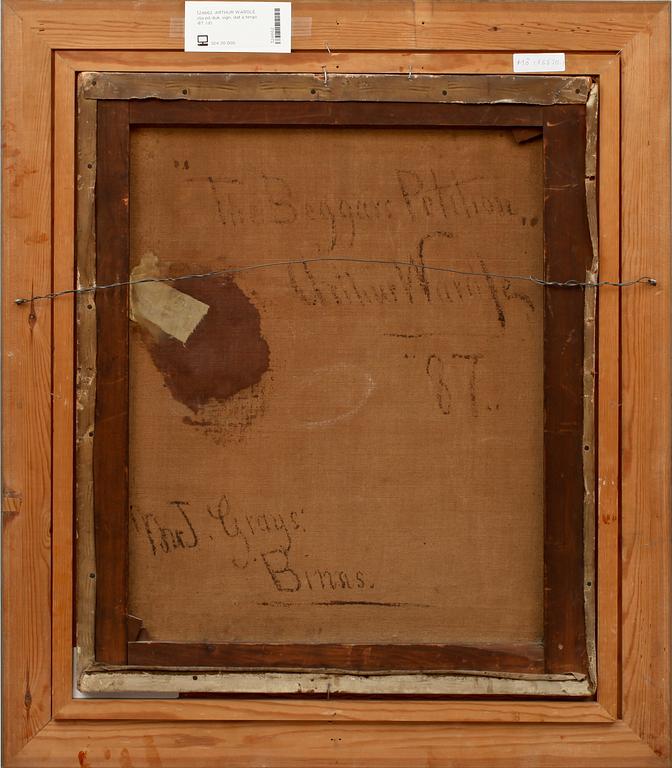 1246662. ARTHUR WARDLE,
olja på duk, sign, dat a tergo
-87. (d)
SEK 20 000
Mö
"The Beggars Petition"
Arthur Wardle
"87.
J. Grays.
Binns.